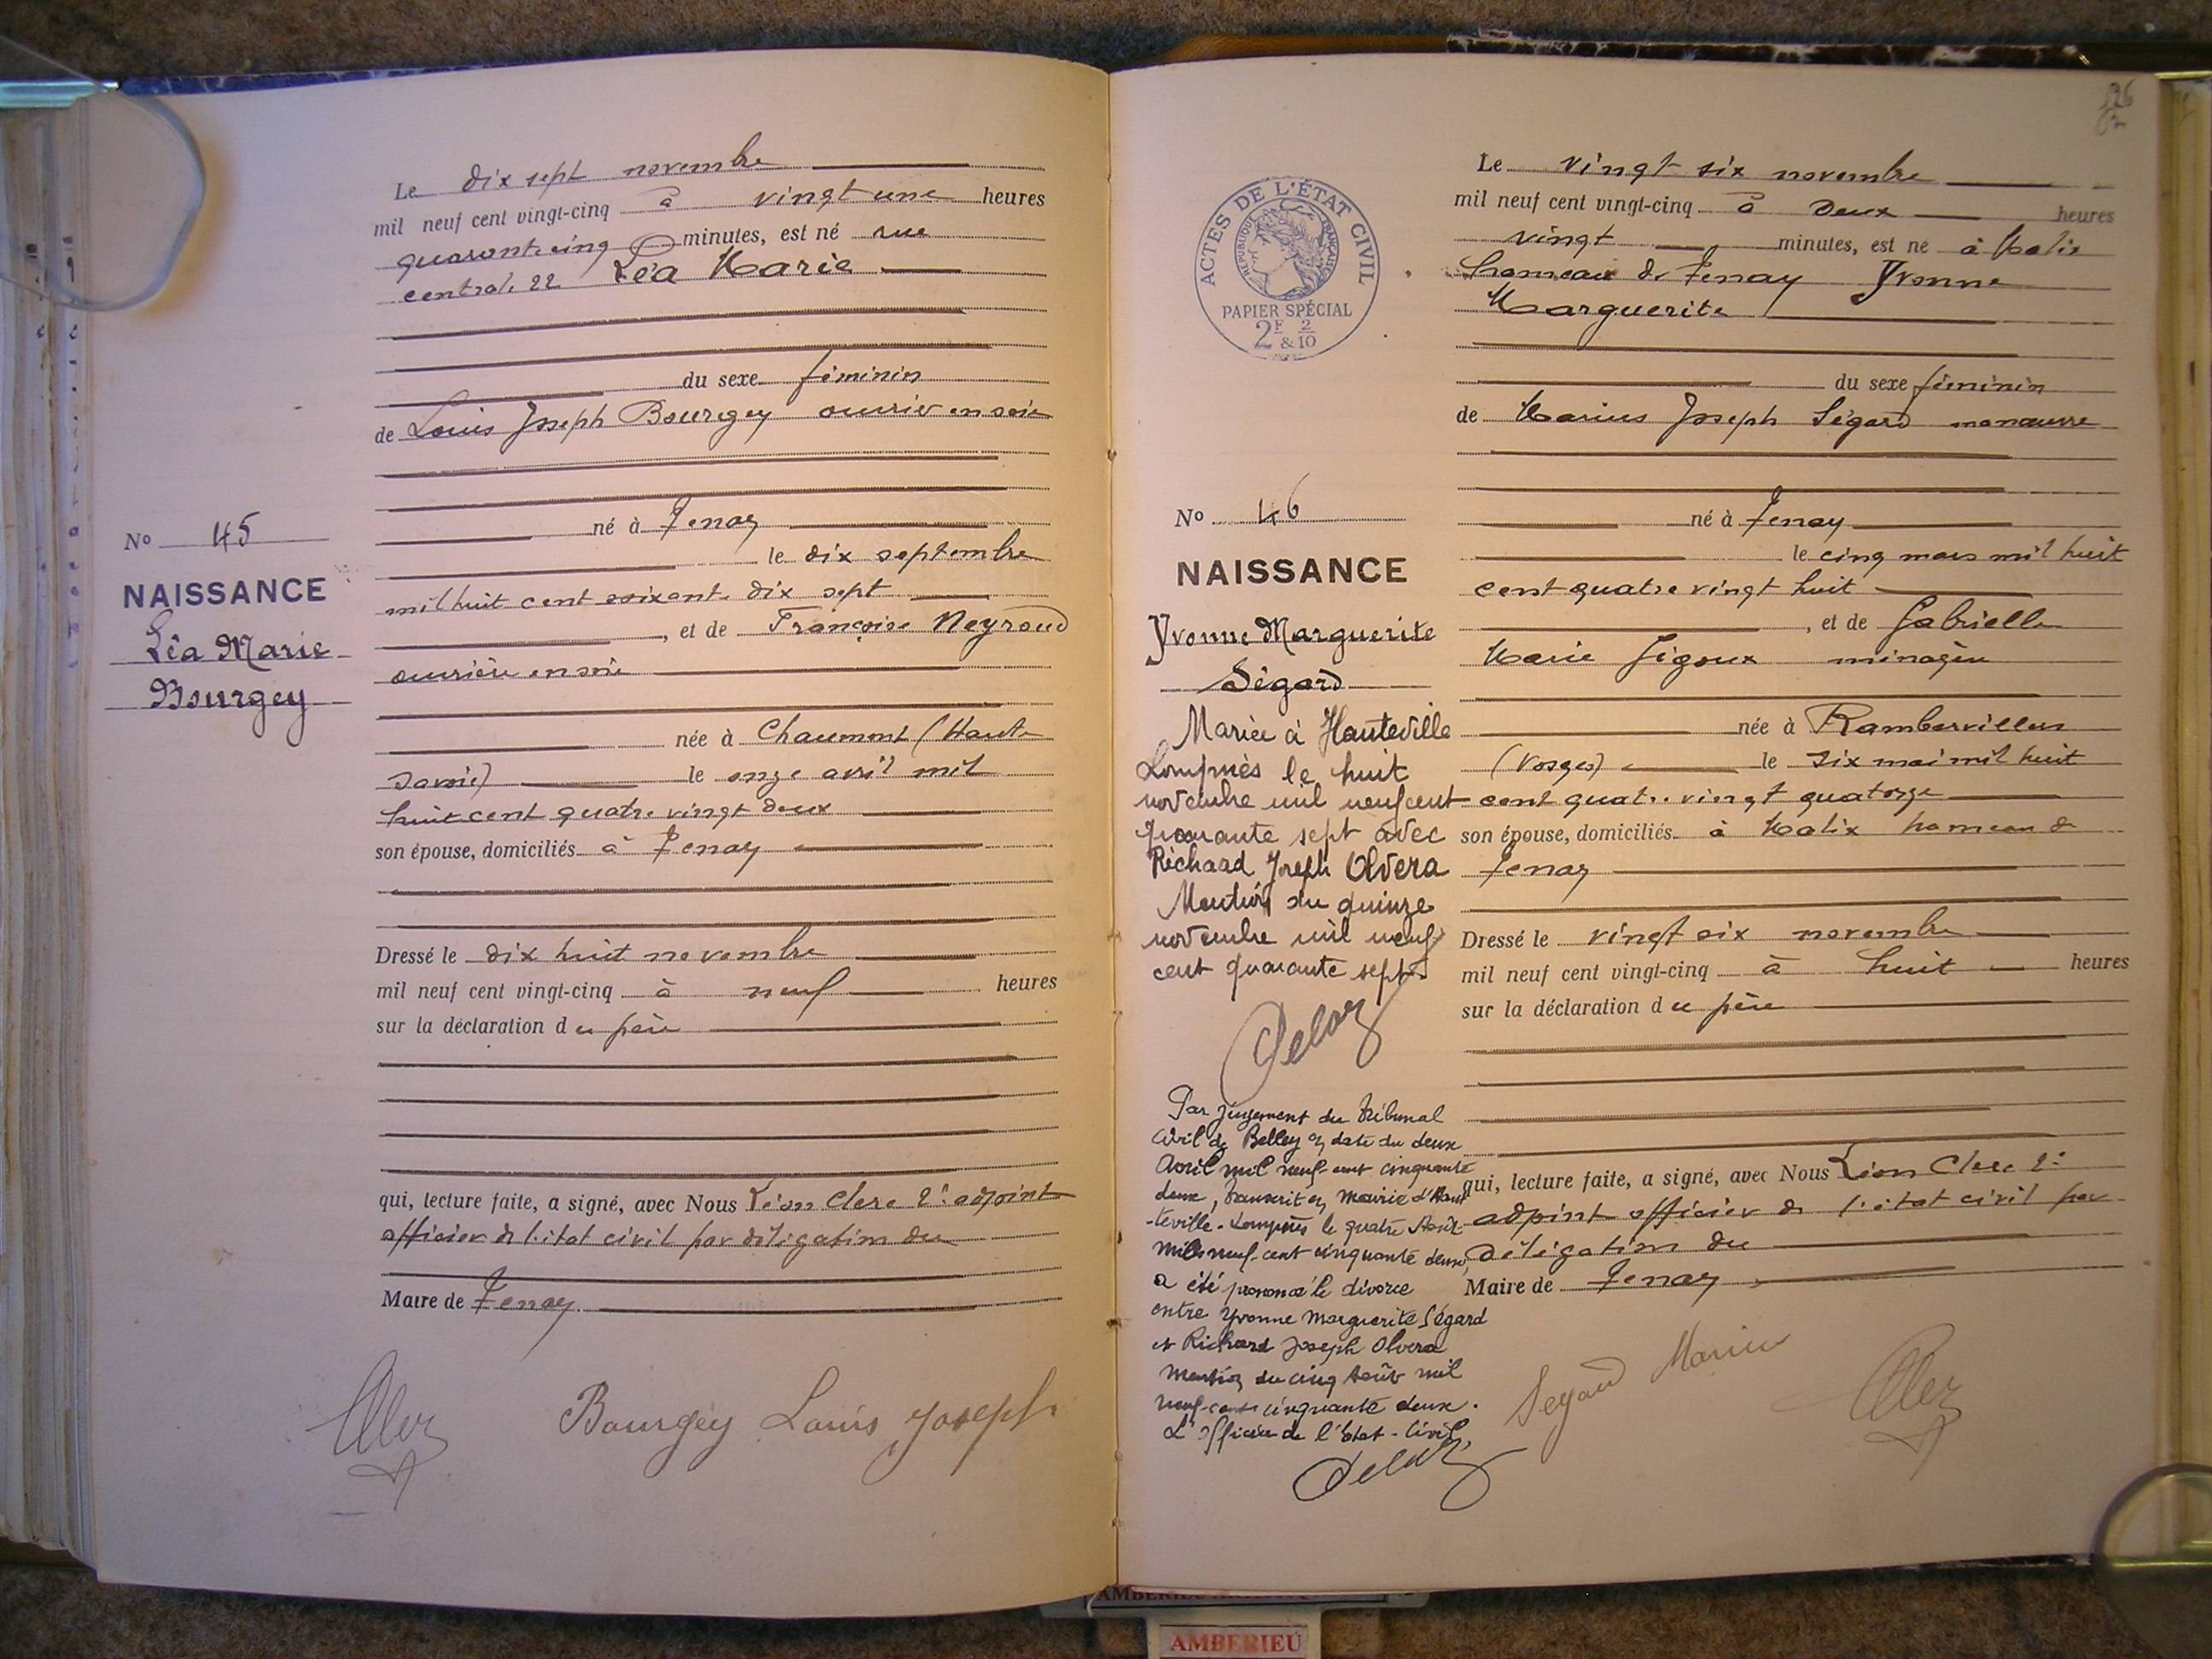 Le dix sept novembre
mil neuf cent vingt-cinq à vingt une heures
quarante cinq minutes, est né rue
centrale 22 Léa Marie
du sexe féminin
de Louis Joseph Bourgey ouvrier en soie
né à Tenay
le dix septembre
mil huit cent soixante dix sept
, et de Françoise Neyroud
ouvrière en soie
née à Chaumont (Haute
Savoie) le onze avril mil
huit cent quatre vingt deux
son épouse, domiciliés à Tenay
Dressé le dix huit novembre
mil neuf cent vingt-cinq à neuf heures
sur la déclaration du père
qui, lecture faite, a signé, avec Nous Léon Clerc 2e adjoint
officier de l'état civil par délégation du
Maire de Tenay
Bourgey Louis Joseph
No 45
NAISSANCE
Léa Marie
Bourgey
ACTES DE L'ÉTAT CIVIL
RÉPUBLIQUE FRANÇAISE
PAPIER SPÉCIAL
2F & 2/10
No 46
NAISSANCE
Yvonne Marguerite
Ségard
Mariée à Hauteville
Lompnès le huit
novembre mil neuf cent
quarante sept avec
Richard Joseph Olvera
Mention du quinze
novembre mil neuf
cent quarante sept.
Par jugement du Tribunal
civil de Belley en date du deux
Avril mil neuf-cent cinquante
deux, transcrit en mairie d'Haut
-teville-Lompnès le quatre Août
mil neuf-cent cinquante deux,
a été prononcé le divorce
entre Yvonne Marguerite Ségard
et Richard Joseph Olvera
Mention du cinq Août mil
neuf-cent cinquante deux.
L'Officier de l'Etat-Civil,
Le vingt six novembre
mil neuf cent vingt-cinq à deux heures
vingt minutes, est né à Malix
hameau de Tenay Yvonne
Marguerite
du sexe féminin
de Marius Joseph Ségard manœuvre
né à Tenay
le cinq mars mil huit
cent quatre vingt huit
, et de Gabrielle
Marie Gigoux ménagère
née à Rambervillers
(Vosges) le six mai mil huit
cent quatre vingt quatorze
son épouse, domiciliés à Malix hameau de
Tenay
Dressé le vingt six novembre
mil neuf cent vingt-cinq à huit heures
sur la déclaration du père
qui, lecture faite, a signé, avec Nous Léon Clerc 2e
adjoint officier de l'état civil par
délégation du
Maire de Tenay
Segard Marius
AMBERIEU